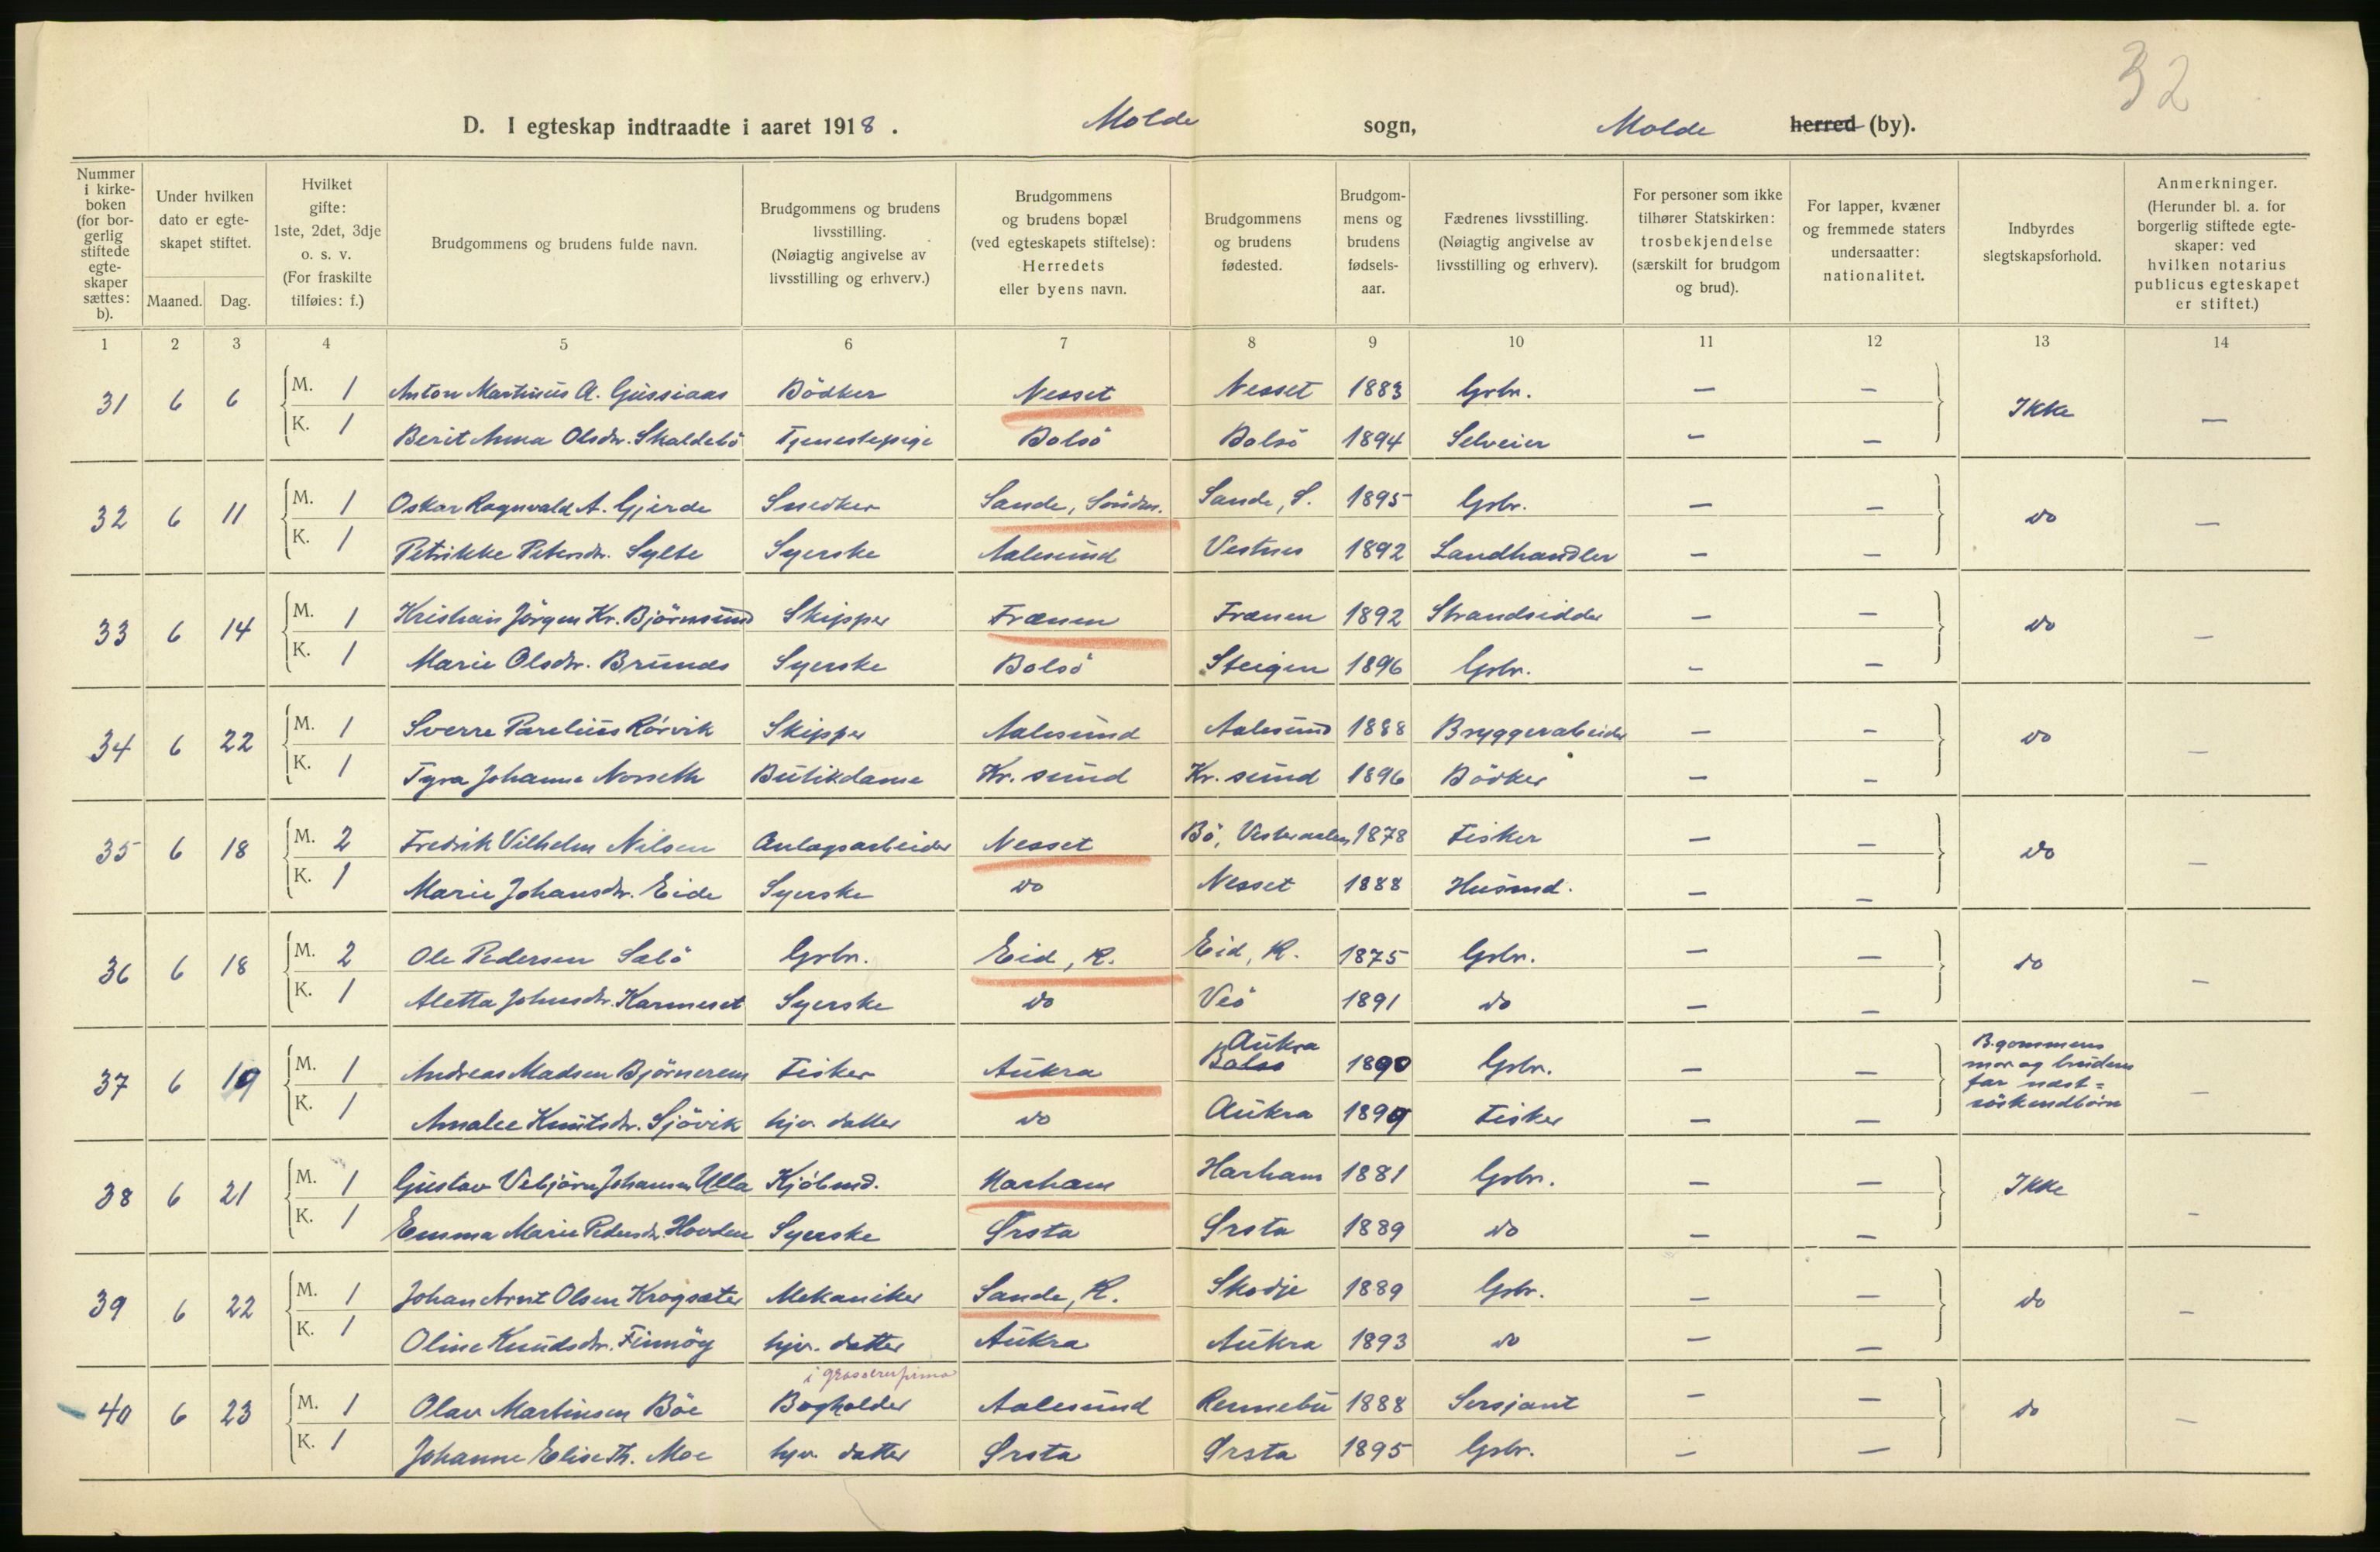 32
D. I egteskap indtraadte i aaret 1918. Molde sogn, Molde herred (by).
Nummer i kirke-boken (for bor-gerlig stiftede egte-skaper sættes: b).
Under hvilken dato er egte-skapet stiftet.
Maaned. Dag.
Hvilket gifte: 1ste, 2det, 3dje o. s. v. (For fraskilte tilføies: f.)
Brudgommens og brudens fulde navn.
Brudgommens og brudens livsstilling. (Nøiagtig angivelse av livsstilling og erhverv.)
Brudgommens og brudens bopæl (ved egteskapets stiftelse): Herredets eller byens navn.
Brudgommens og brudens fødested.
Brudgom-mens og brudens fødsels-aar.
Fædrenes livsstilling. (Nøiagtig angivelse av livsstilling og erhverv).
For personer som ikke tilhører Statskirken: trosbekjendelse (særskilt for brudgom og brud).
For lapper, kvæner og fremmede staters undersaatter: nationalitet.
Indbyrdes slegtskapsforhold.
Anmerkninger. (Herunder bl. a. for borgerlig stiftede egte-skaper: ved hvilken notarius publicus egteskapet er stiftet.)
1 2 3 4 5 6 7 8 9 10 11 12 13 14
31 6 6 M. 1 Anton Martinus A. Gussiaas Bödker Nesset Nesset 1883 Grbr. — — Ikke —
K. 1 Berit Anna Olsdtr. Skaldebö Tjenestepige Bolsö Bolsö 1894 Selveier — —
32 6 11 M. 1 Oskar Ragnvald A. Gjerde Snedker Sande, Söndm. Sande, S. 1895 Grbr. — — do —
K. 1 Petrikke Petersdtr. Sylte Syerske Aalesund Vestnes 1892 Landhandler — —
33 6 14 M. 1 Kristian Jörgen Kr. Björnsund Skipper Frænen Frænen 1892 Strandsidder — — do —
K. 1 Marie Olsdtr. Brunaas Syerske Bolsö Steigen 1896 Grbr. — —
34 6 22 M. 1 Sverre Parelius Rörvik Skipper Aalesund Aalesund 1888 Bryggerarbeider — — do —
K. 1 Tyra Johanne Norseth Butikdame Kr. sund Kr. sund 1896 Bödker — —
35 6 18 M. 2 Fredrik Vilhelm Nilsen Anlagsarbeider Nesset Bö, Vesteraalen 1878 Fisker — — do —
K. 1 Marie Johansdtr. Eide Syerske do Nesset 1888 Husmd. — —
36 6 18 M. 2 Ole Pedersen Sæbö Grbr. Eid, R. Eid, R. 1875 Grbr. — — do —
K. 1 Aletta Johnsdtr. Karmeset Syerske do Veö 1891 do — —
37 6 19 M. 1 Andreas Madsen Björnerem Fisker Aukra Aukra Bolsö 1890 Grbr. — — B.gommens mor og brudens far næst=söskendbörn —
K. 1 Amalie Knutsdtr. Sjövik hjv. datter do Aukra 1899 Fisker — —
38 6 21 M. 1 Gustav Vebjörn Johansen Ulla Kjöbmd. Harham Harham 1881 Grbr. — — Ikke —
K. 1 Emma Marie Pedersdtr. Hovden Syerske Ørsta Ørsta 1889 do — —
39 6 22 M. 1 Johan Arnt Olsen Krogsæter Mekaniker Sande, R. Skodje 1889 Grbr. — — do —
K. 1 Oline Knudsdtr. Finnöy hjv. datter Aukra Aukra 1893 do — —
i grossererfirma
40 6 23 M. 1 Olav Martinsen Böe Bogholder Aalesund Rennebu 1888 Sersjant — — do —
K. 1 Johanne Elise Th. Moe hjv. datter Ørsta Ørsta 1895 Grbr. — —